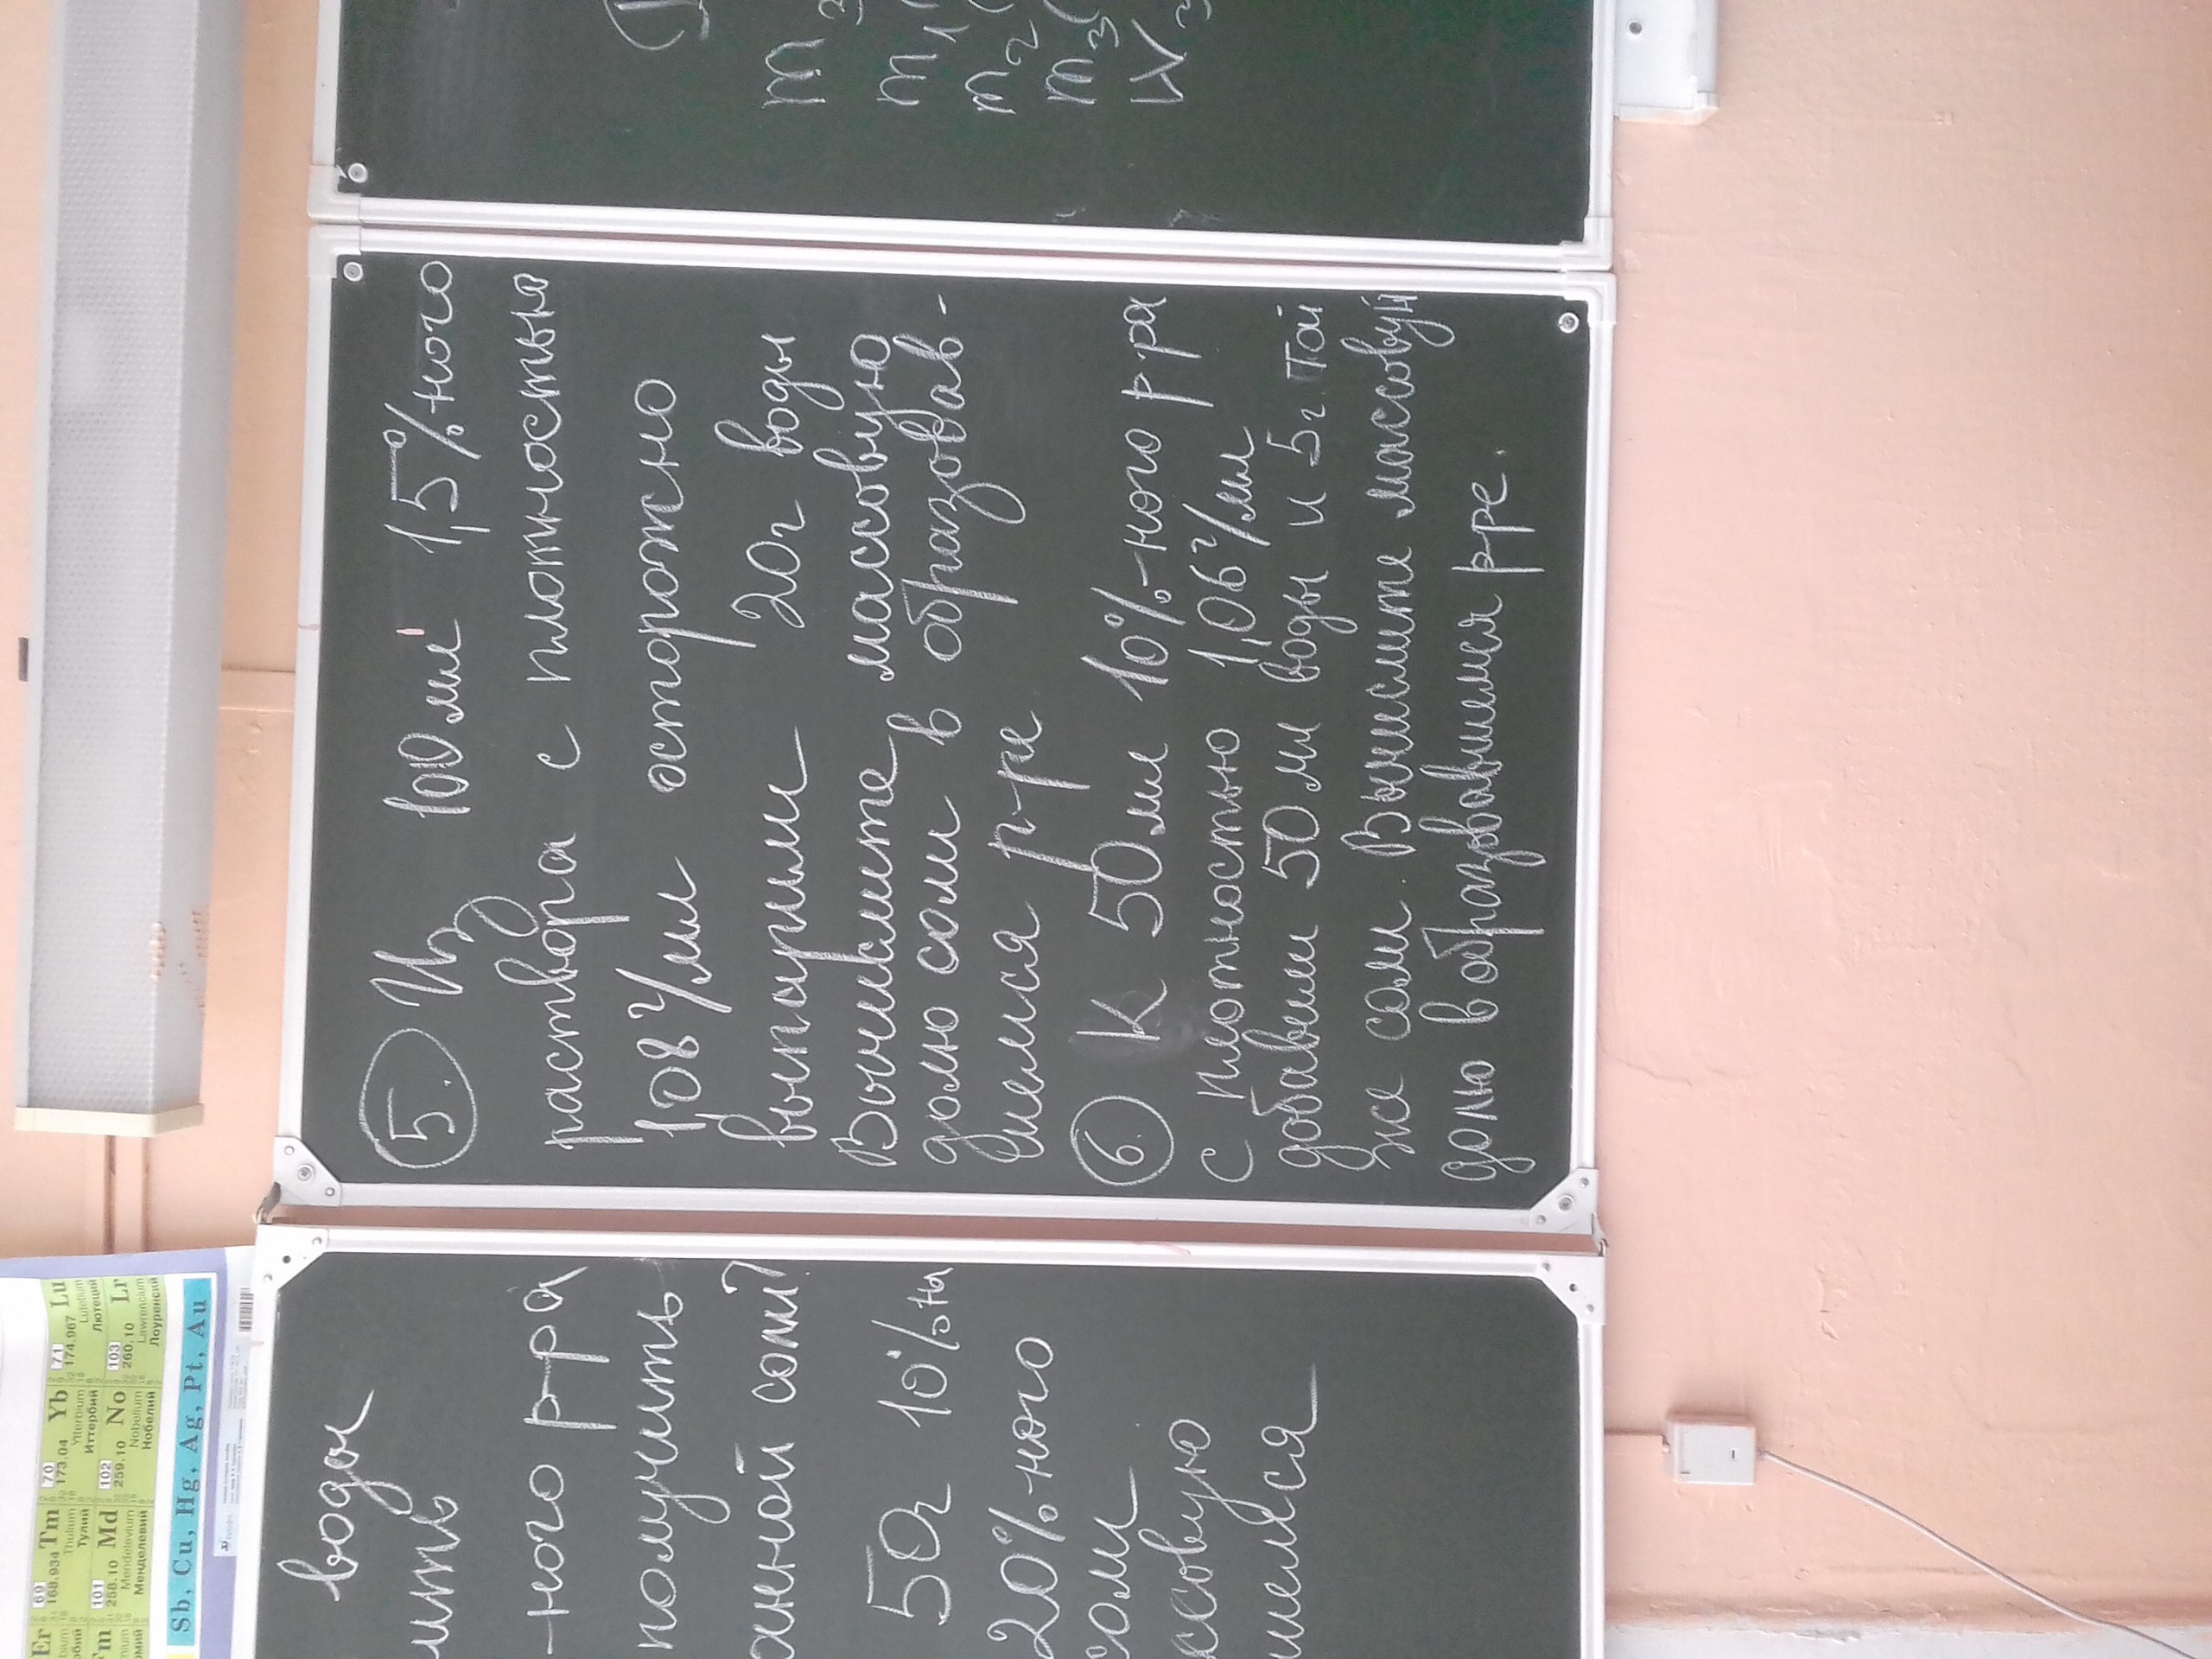 воды
-ного р-ра
получить
анной соли?
50г 10%-ны
20%-ного
соли
ссовую
шемся
5. Из 100 мл 1,5%ного
раствора с плотностью
1,08 г/мл осторожно
выпарили 20г воды
Вычислите массовую
долю соли в образовав-
шемся р-ре
6. К 50мл 10%-ного р ра
с плотностью 1,06 г/мл
добавили 50 мл воды и 5 г. той
же соли. Вычислите массовую
долю в образовавшемся рре.
m
m1
m2
m3(
W3
Er 69 168.934 Tm 70 173.04 Yb 71 174.967 Lu
Thulium Ytterbium Lutetium
Тулий Иттербий Лютеций
101 258.10 Md 102 259.10 No 103 260.10 Lr
Mendelevium Nobelium Lawrencium
Менделевий Нобелий Лоуренсий
Sb, Cu, Hg, Ag, Pt, Au